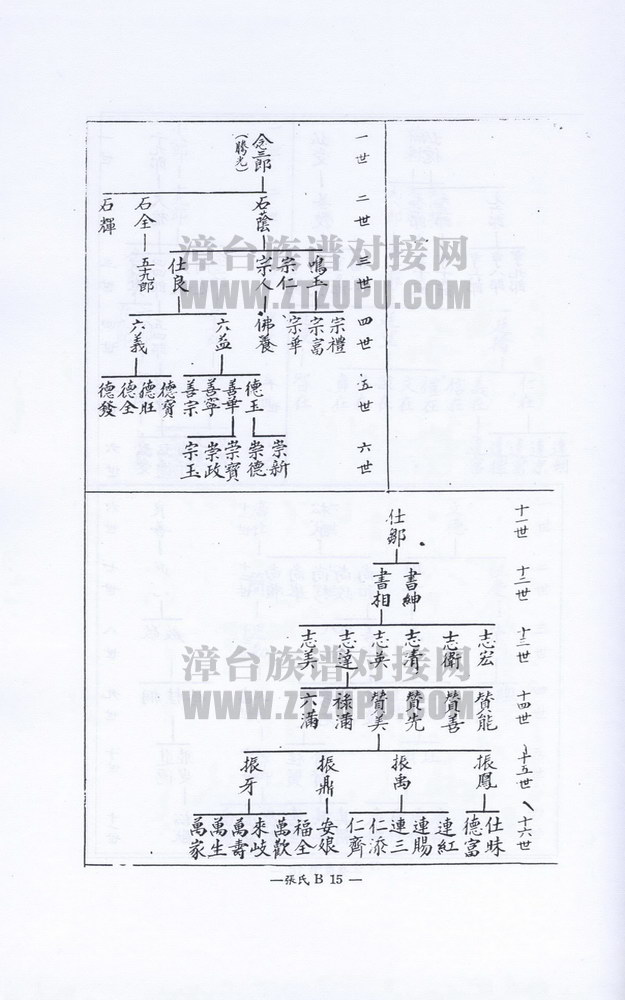 一世
二世
三世
四世
五世
六世
念三郎
(勝光)
石蔭
石全
石輝
鳴玉
宗仁
宗人
仕良
五九郎
宗禮
宗富
宗華
佛養
六益
六義
德玉
善華
善寧
善宗
德寶
德旺
德全
德發
崇新
崇德
崇寶
崇政
宗玉
漳台族谱对接网
WWW.ZTZUPU.COM
十一世
十二世
十三世
十四世
十五世
十六世
仕鄒
書紳
書相
志宏
志衛
志清
志英
志達
志美
贊能
贊善
贊先
贊美
祿滿
六滿
振鳳
振禹
振鼎
振牙
仕昧
德富
連紅
連腸
連三
仁添
仁齊
安娘
福全
萬歡
來岐
萬壽
萬生
萬家
漳台族谱对接网
WWW.ZTZUPU.COM
—張氏 B 15—